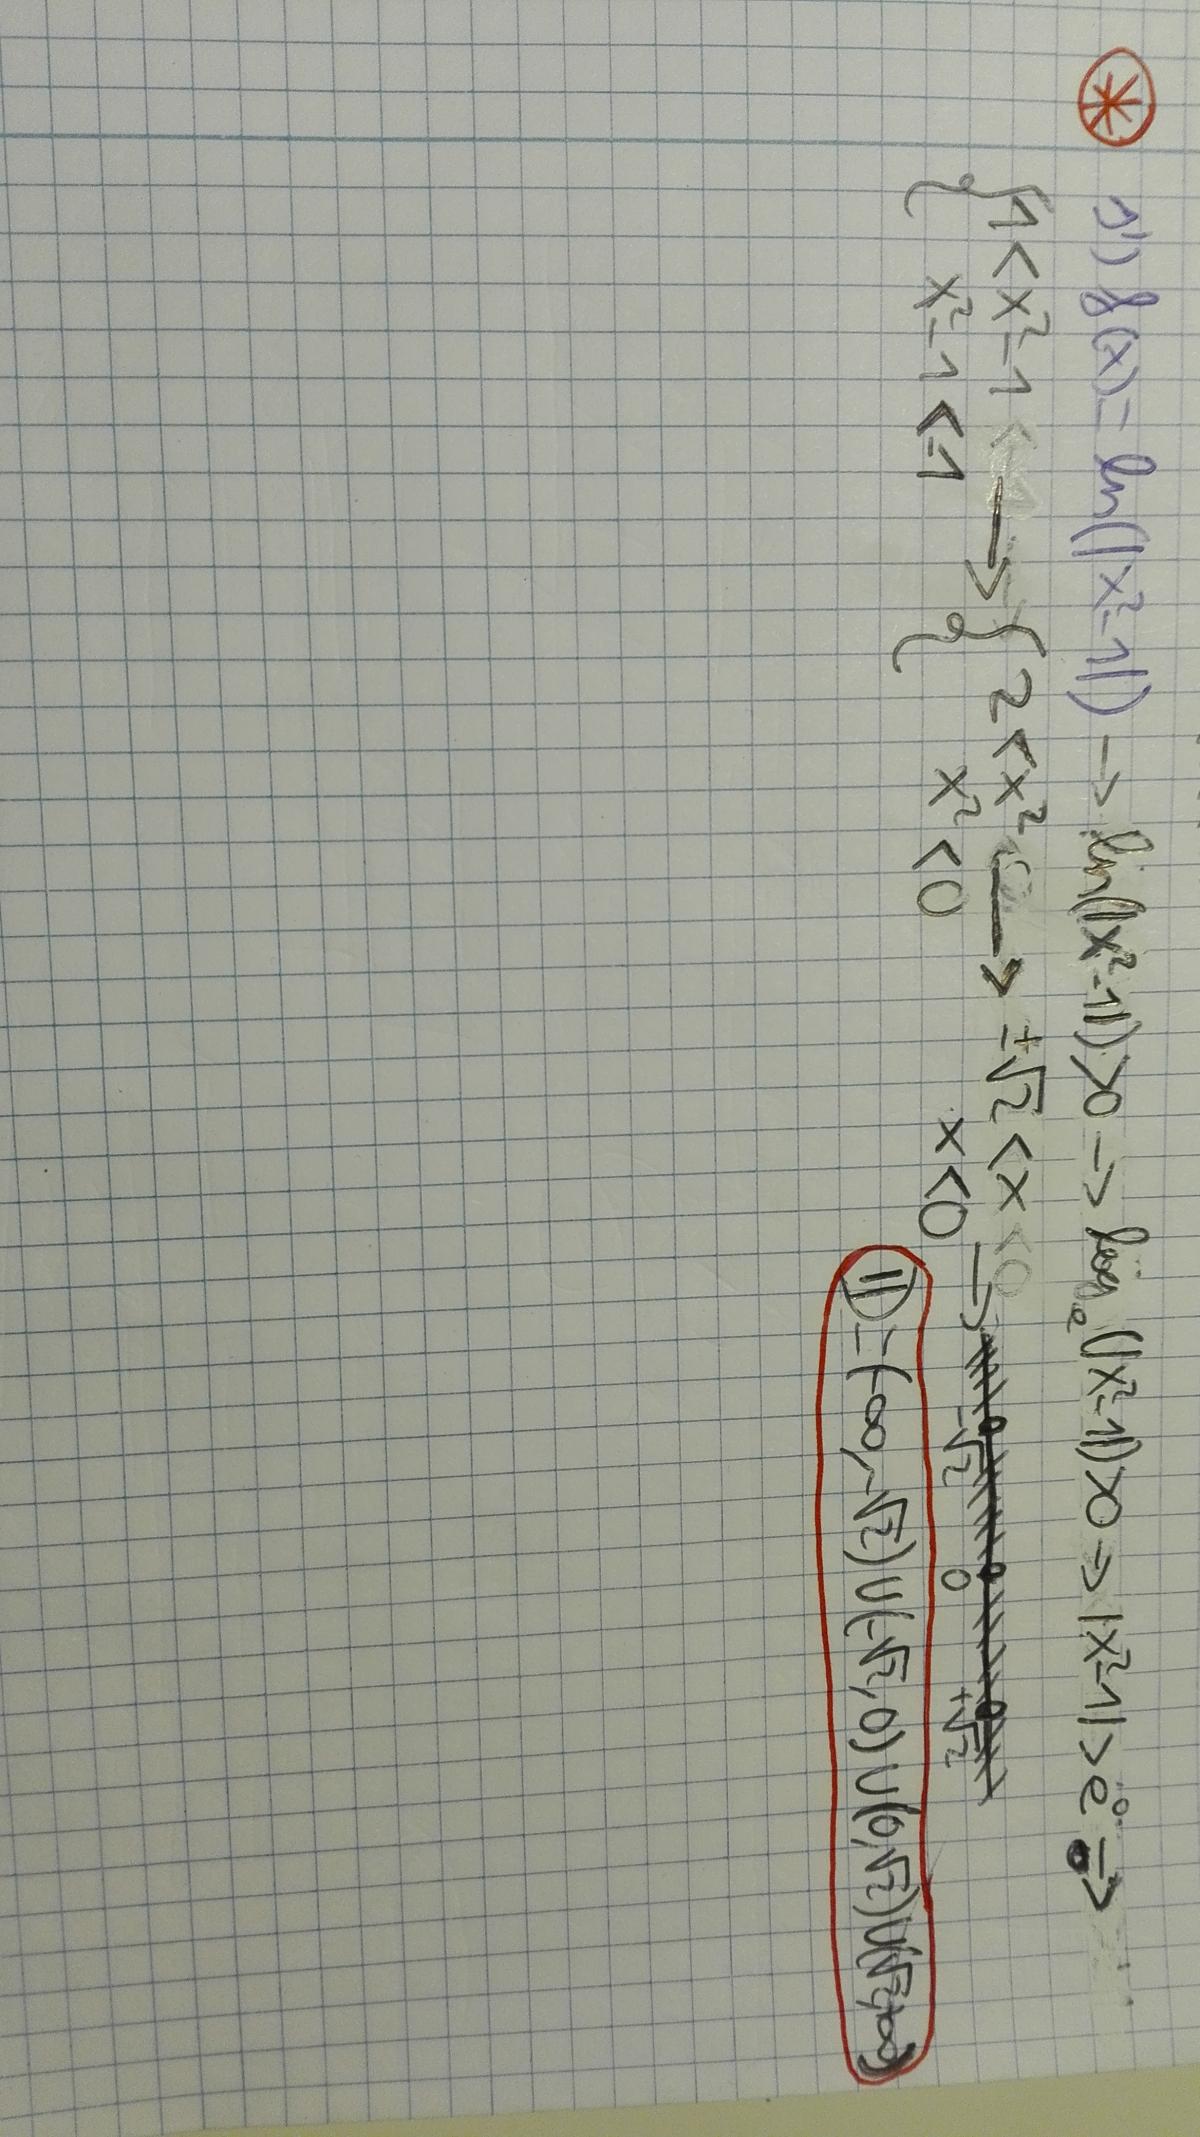 1) f(x) = ln(|x²-1|) → ln(|x²-1|)>0 → log_e(|x²-1|)>0 → |x²-1|>e⁰ →
{ 1<x²-1 → { 2<x² → ±√2<x
x²-1<-1 x²<0 x<0 →
-√2 0 +√2
D = (-∞,-√2)∪(-√2,0)∪(0,√2)∪(√2,+∞)